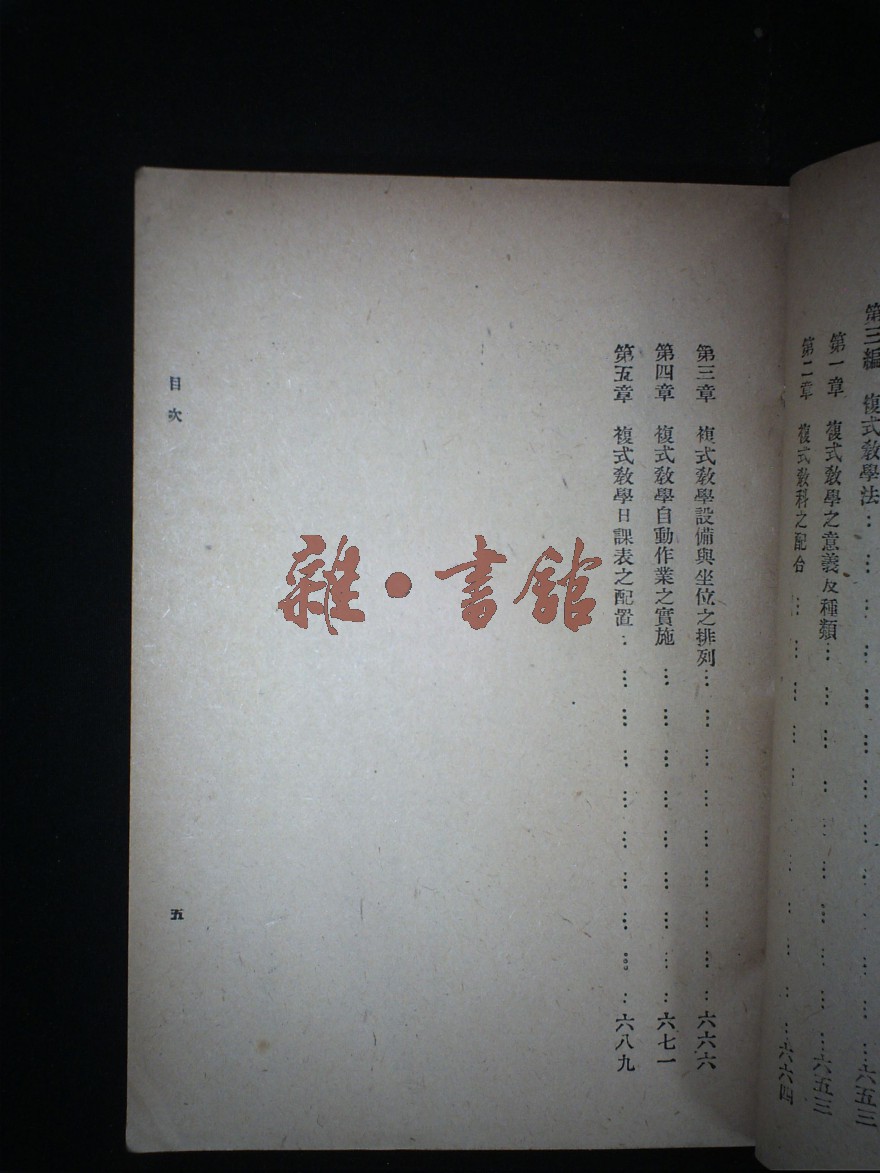 第三編　複式教學法………………六五三
第一章　複式教學之意義及種類………………六五三
第二章　複式教科之配合………………六六四
第三章　複式教學設備與坐位之排列………………六六六
第四章　複式教學自動作業之實施………………六七一
第五章　複式教學日課表之配置………………六八九
目次
五
雜·書館